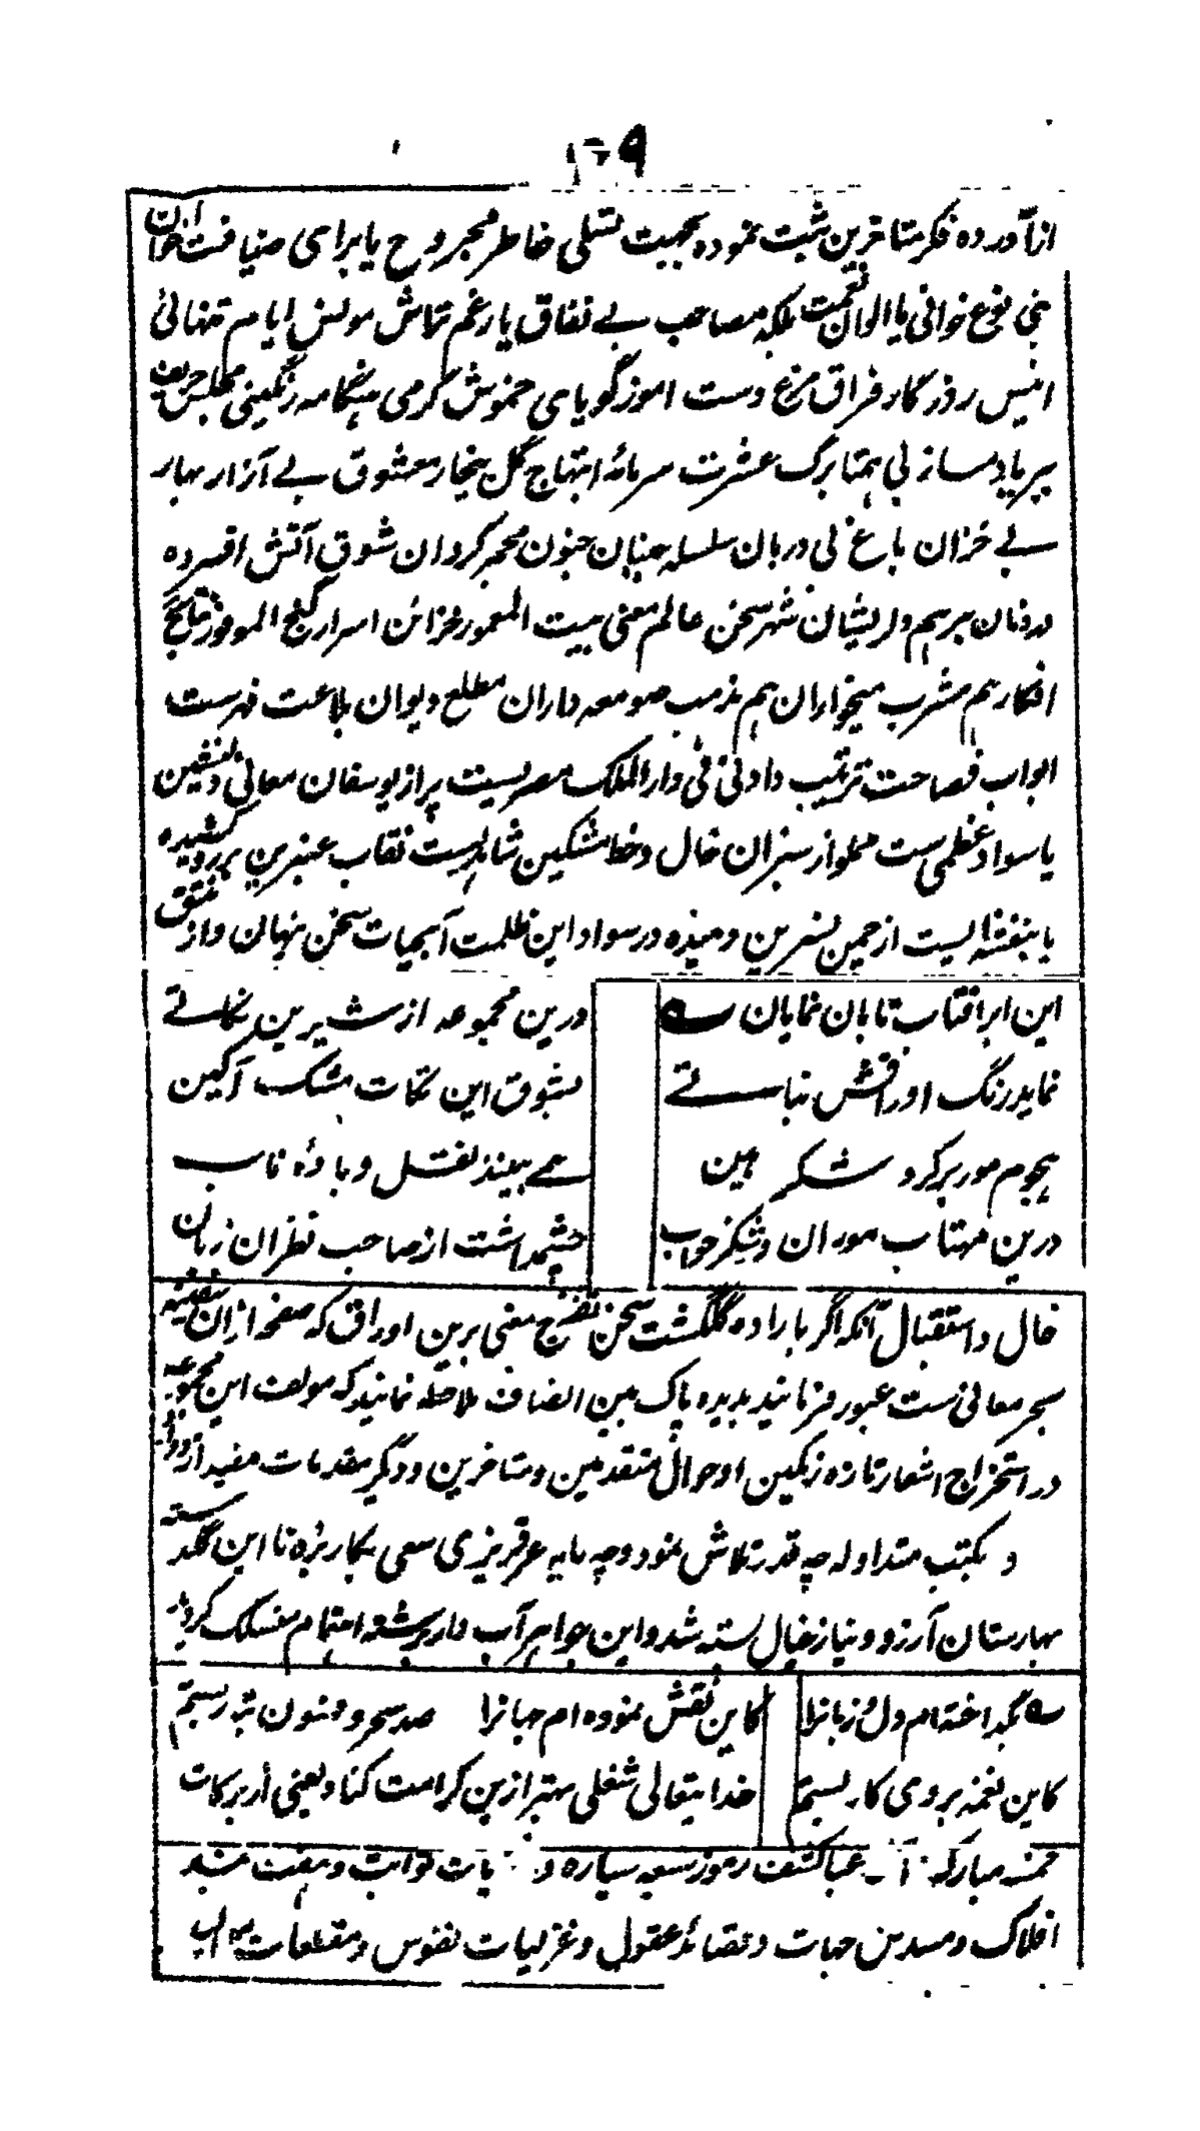 ۱۲۹
از آورده فکر متاخرین ثبت نموده بجهت تسلی خاطر مجروح یا برای ضیافت اخوان
بنی نوع خوانی با الوان نعمت بلکه مصاحب بے نفاق یار غم تماش مونس ایام تنهائی
انیس روزگار فراق مرغ دست اموز گویای خموش گرمی هنگامه رنگینی مجلس حریف
پیر یا دمساز بی همتا برگ عشرت سرمائهٔ ابتهاج گل بیخار معشوق بے آزار بهار
بے خزان باغ بی دربان سلسله جنبان جنون مجمر گردان شوق آتش افسرده
درونان مرهم دلریشان شهر سخن عالم معنی بیت المعمور خزائن اسرار گنج الموفور نتایج
افکار هم مشرب میخواران هم مذهب صومعه داران مطلع دیوان بلاغت فهرست
ابواب فصاحت ترتیب داد نی نی دار الملک مصریست پر از یوسفان معانی دلنشین
یا سواد عظمی ست مملو از سبزان خال و خط مشکین شاهدیست نقاب عنبرین بر رو کشیده
یا بنفشه ایست از چمن نسرین دمیده در سواد این ظلمت آبحیات سخن پنهان و از شق
این ابر افتاب تابان نمایان ــه درین مجموعه از شیرین نکاتے
نماید رنگ اوراقش نباتے بشوق این نکات مشک آگین
هجوم مور بر گرد شکر بین همے بینند نقل و بادهٔ ناب
درین مهتاب موران و شکر خواب چشمداشت از صاحب نظران زمان
حال و استقبال آنکه اگر باراده گلگشت سخن تفرج معنی برین اوراق که صفحه از ان سفینه
سحر معانی ست عبور فرمایند بدیده پاک بین انصاف ملاحظه نمایند که مولف این مجموعه
در استخراج اشعار تازه رنگین احوال متقدمین و متاخرین و دیگر مقدمات مفید از
و کتب متداوله چه قدر تلاش نمود و چه مایه عرقریزی سعی بکار برده تا این گلدسته
بهارستان آرزو و نیاز خیال بسته شد و این جواهر آب دار برشته اهتمام منسلک گردید
ــه بگداخته ام دل و زبانرا کاین نقش نموده ام جهانرا صد سحر و فسون بتار بستم
کاین نغمه بروی کار بستم خدایتعالی شغلی بهتر ازین کرامت کناد یعنی از برکات
خمسه مبارکه کشف رموز سبعه سیاره و ثوابت و هفت بند
افلاک و مسدس جهات و قصائد عقول و غزلیات نفوس و مقطعات